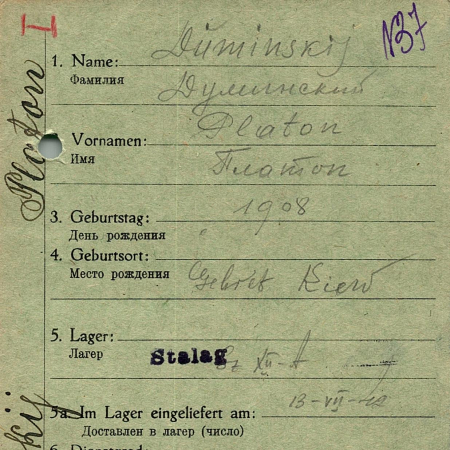 I
N37
1. Name: Duminskij
Фамилия Думинский
Vornamen: Platon
Имя Платон
3. Geburtstag: 1908
День рождения
4. Geburtsort:
Место рождения Gebiet Kiew
5. Lager:
Лагер Stalag XII-A
5a. Im Lager eingeliefert am: 13-VII-42
Доставлен в лагер (число)
Platon
kij